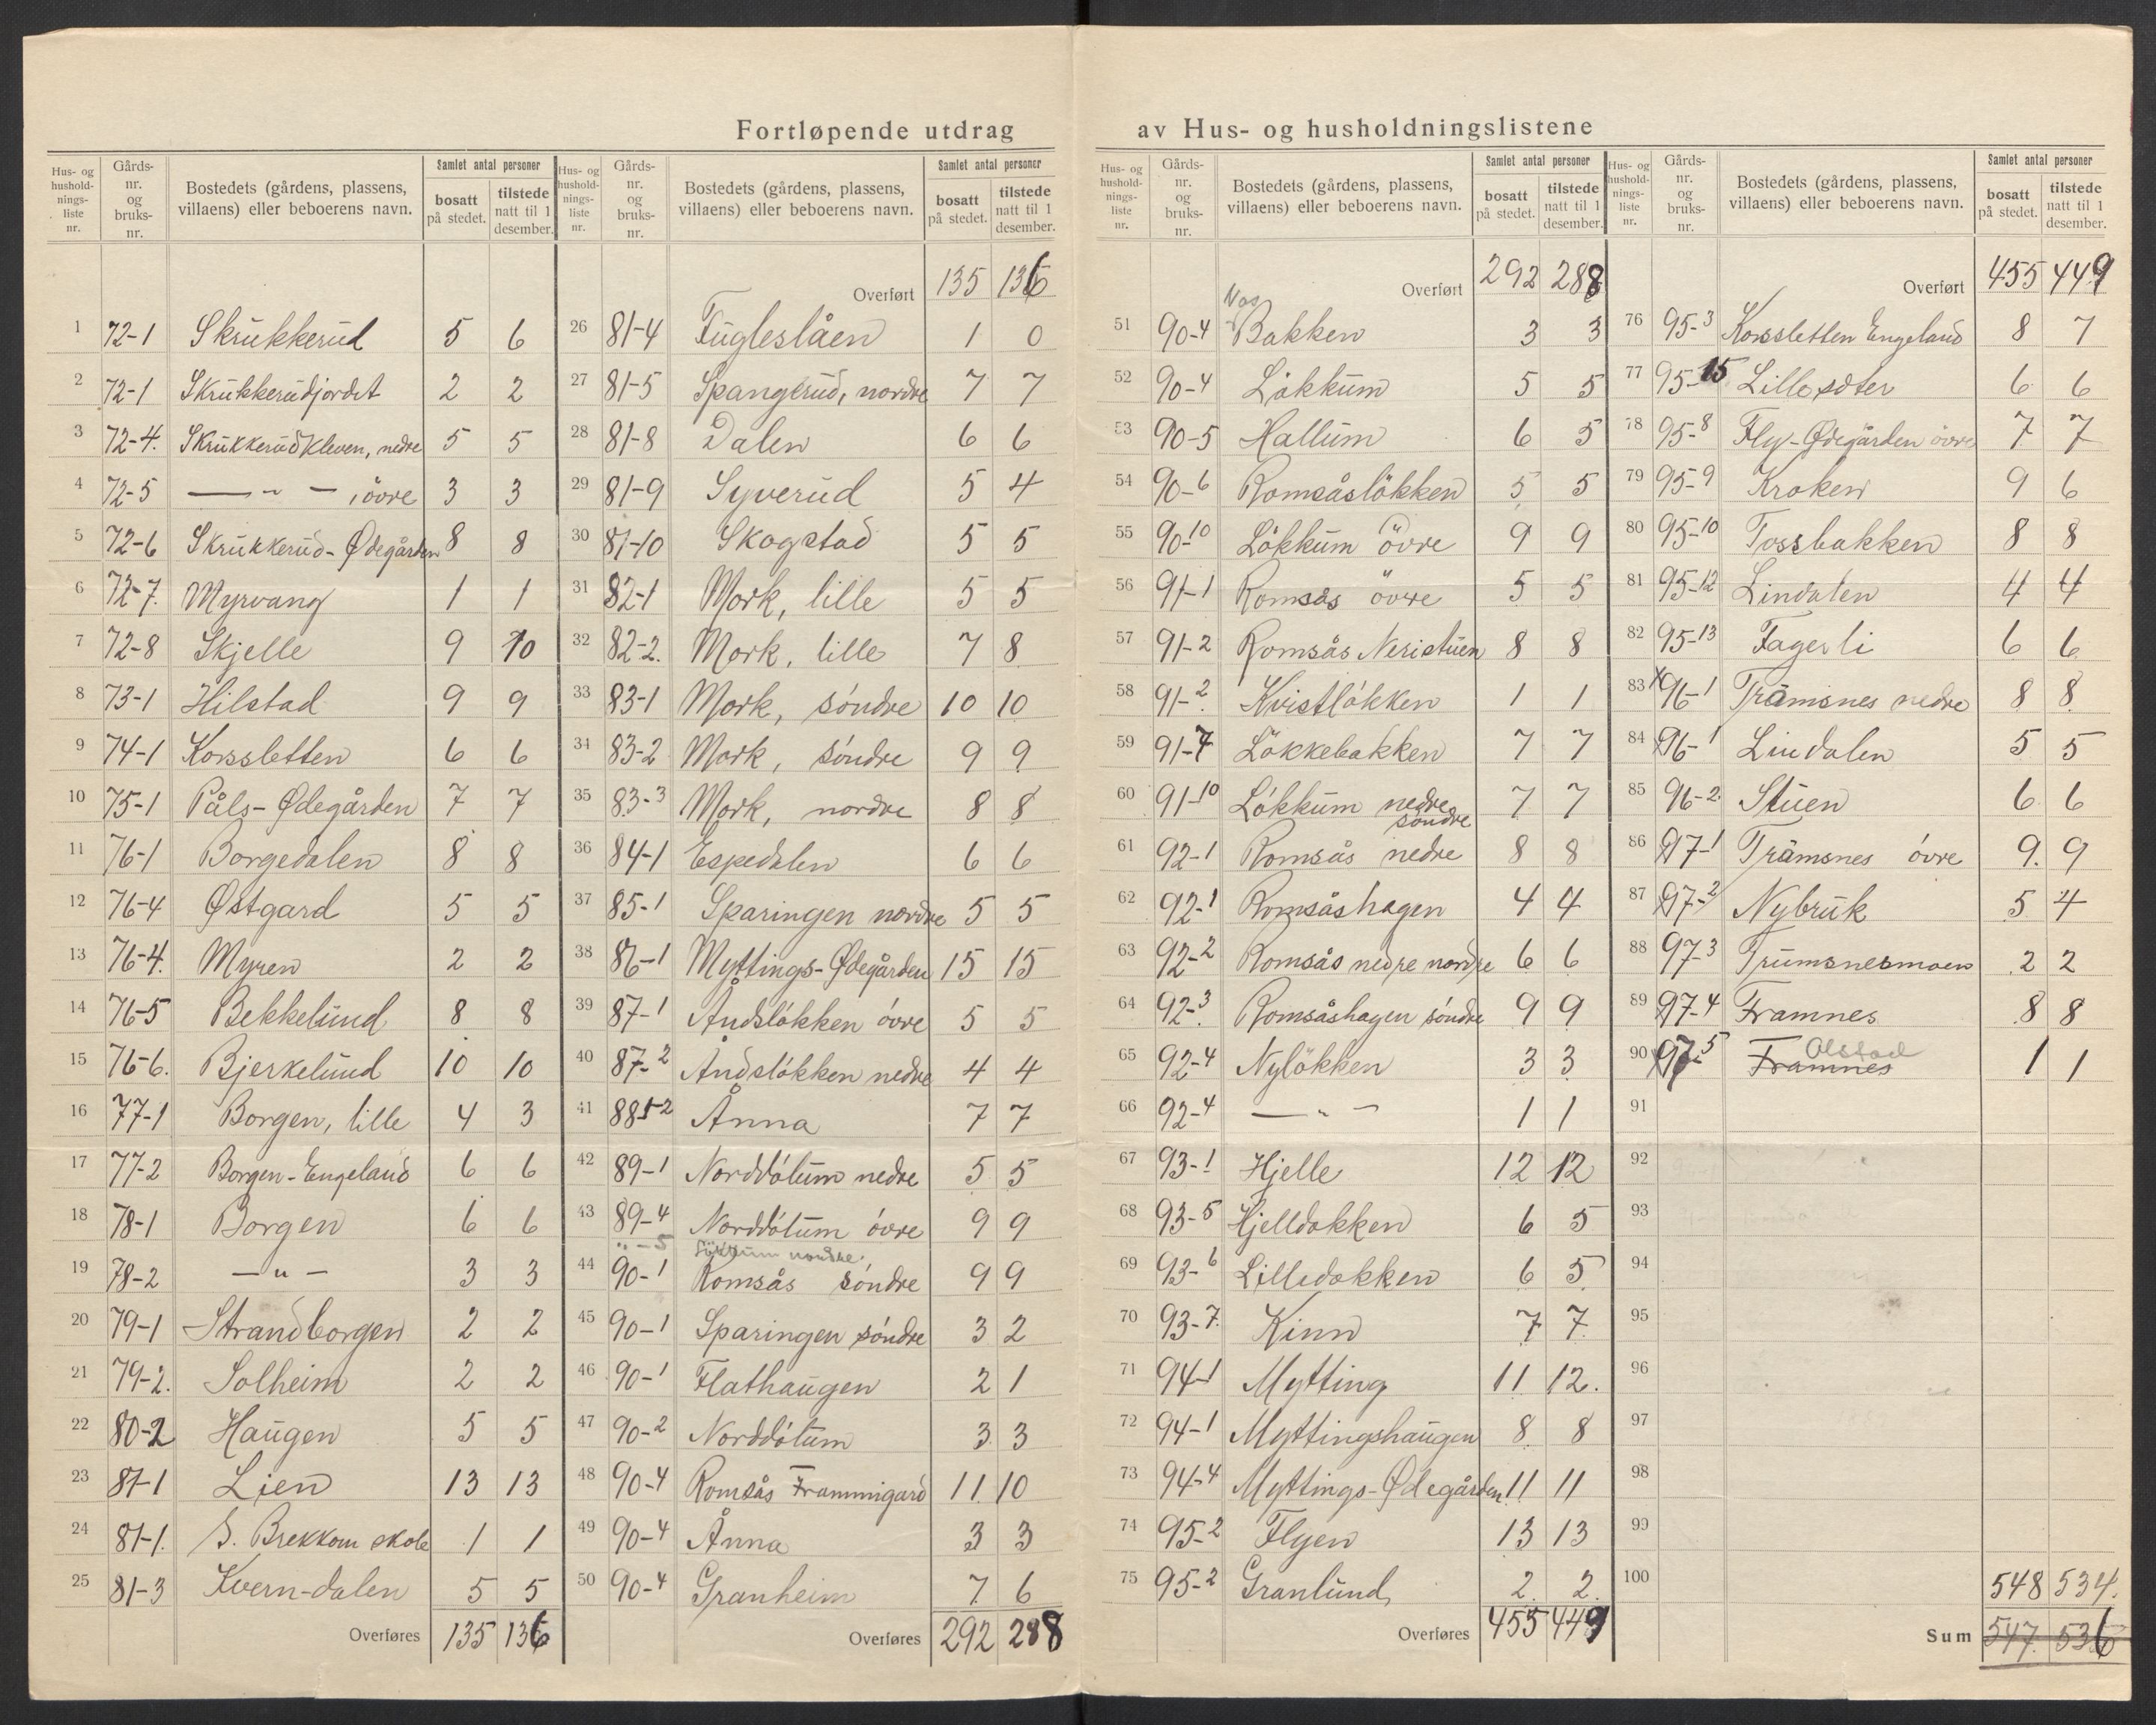 Fortløpende utdrag av Hus- og husholdningslistene
Hus- og hushold-nings-liste nr. Gårds-nr. og bruks-nr. Bostedets (gårdens, plassens, villaens) eller beboerens navn. Samlet antal personer bosatt på stedet. tilstede natt til 1 desember.
1 72-1 Skrukkerud 5 6
2 72-1 Skrukkerudjordet 2 2
3 72-4. Skrukkerudkleven, nedre 5 5
4 72-5 — " — , øvre 3 3
5 72-6 Skrukkerud-Ødegården 8 8
6 72-7. Myrvang 1 1
7 72-8 Skjelle 9 10
8 73-1 Hilstad 9 9
9 74-1 Korssletten 6 6
10 75-1 Påls-Ødegården 7 7
11 76-1 Borgedalen 8 8
12 76-4 Østgard 5 5
13 76-4. Myren 2 2
14 76-5 Bekkelund 8 8
15 76-6. Bjerkelund 10 10
16 77-1 Borgen, lille 4 3
17 77-2 Borgen-Engeland 6 6
18 78-1 Borgen 6 6
19 78-2 — " — 3 3
20 79-1 Strandborgen 2 2
21 79-2. Solheim 2 2
22 80-2 Haugen 5 5
23 81-1 Lien 13 13
24 81-1. S. Brekkom skole 1 1
25 81-3 Kvern-dalen 5 5
Overføres 135 136
Hus- og hushold-nings-liste nr. Gårds-nr. og bruks-nr. Bostedets (gårdens, plassens, villaens) eller beboerens navn. Samlet antal personer bosatt på stedet. tilstede natt til 1 desember.
Overført 135 136
26 81-4 Fugleslåen 1 0
27 81-5 Spangerud, nordre 7 7
28 81-8 Dalen 6 6
29 81-9 Syverud 5 4
30 81-10 Skogstad 5 5
31 82-1 Mork, lille 5 5
32 82-2. Mork, lille 7 8
33 83-1 Mork, söndre 10 10
34 83-2 Mork, söndre 9 9
35 83-3 Mork, nordre 8 8
36 84-1 Espedalen 6 6
37 85-1 Sparingen nordre 5 5
38 86-1 Myttings-Ødegården 15 15
39 87-1 Åndslökken övre 5 5
40 87-2 Åndslökken nedre 4 4
41 88 1-2 Ånna 7 7
42 89-1 Norddötum nedre 5 5
43 89-4 Norddötum övre 9 9
" -5 Lökkum nordre.
44 90-1 Romsås söndre 9 9
45 90-1 Sparingen söndre 3 2
46 90-1 Flathaugen 2 1
47 90-2 Norddötum 3 3
48 90-4 Romsås Frammigard 11 10
49 90-4 Ånna 3 3
50 90-4 Granheim 7 6
Overføres 292 288
Hus- og hushold-nings-liste nr. Gårds-nr. og bruks-nr. Bostedets (gårdens, plassens, villaens) eller beboerens navn. Samlet antal personer bosatt på stedet. tilstede natt til 1 desember.
Overført 292 288
51 90-4 Bakken 3 3
52 90-4 Lökkum 5 5
53 90-5 Hallum 6 5
54 90-6 Romsåslökken 5 5
55 90-10 Lökkum övre 9 9
56 91-1 Romsås övre 5 5
57 91-2 Romsås Neristuen 8 8
58 91-2 Kvistlökken 1 1
59 91-7 Lökkebakken 7 7
60 91-10 Lökkum nedre 7 7
söndre
61 92-1 Romsås nedre 8 8
62 92-1 Romsåshagen 4 4
63 92-2 Romsås nedre nordre 6 6
64 92-3 Romsåshagen söndre 9 9
65 92-4 Nylökken 3 3
66 92-4 — " — 1 1
67 93-1 Hjelle 12 12
68 93-5 Hjelldokken 6 5
69 93-6 Lilledokken 6 5
70 93-7. Kinn 7 7
71 94-1 Mytting 11 12.
72 94-1 Myttingshaugen 8 8
73 94-4 Myttings-Ødegården 11 11
74 95-2 Flyen 13 13
75 95-2 Granlund 2 2
Overføres 455 449
Hus- og hushold-nings-liste nr. Gårds-nr. og bruks-nr. Bostedets (gårdens, plassens, villaens) eller beboerens navn. Samlet antal personer bosatt på stedet. tilstede natt til 1 desember.
Overført 455 449
76 95-3 Korssletten Engeland 8 7
77 95-15 Lillesæter 6 6
78 95-8 Fly-Ødegården övre 7 7
79 95-9 Kroken 9 6
80 95-10 Tossbakken 8 8
81 95-12 Lindalen 4 4
82 95-13 Fagerli 6 6
83 96-1 Tråmsnes nedre 8 8
84 96-1 Lindalen 5 5
85 96-2 Stuen 6 6
86 97-1 Tråmsnes övre 9 9
87 97-2 Nybruk 5 4
88 97-3 Trumsnesmoen 2 2
89 97-4 Framnes 8 8
90 97-5 Framnes Olstad 1 1
91
92
93
94
95
96
97
98
99
100
548 534.
Sum 547 536